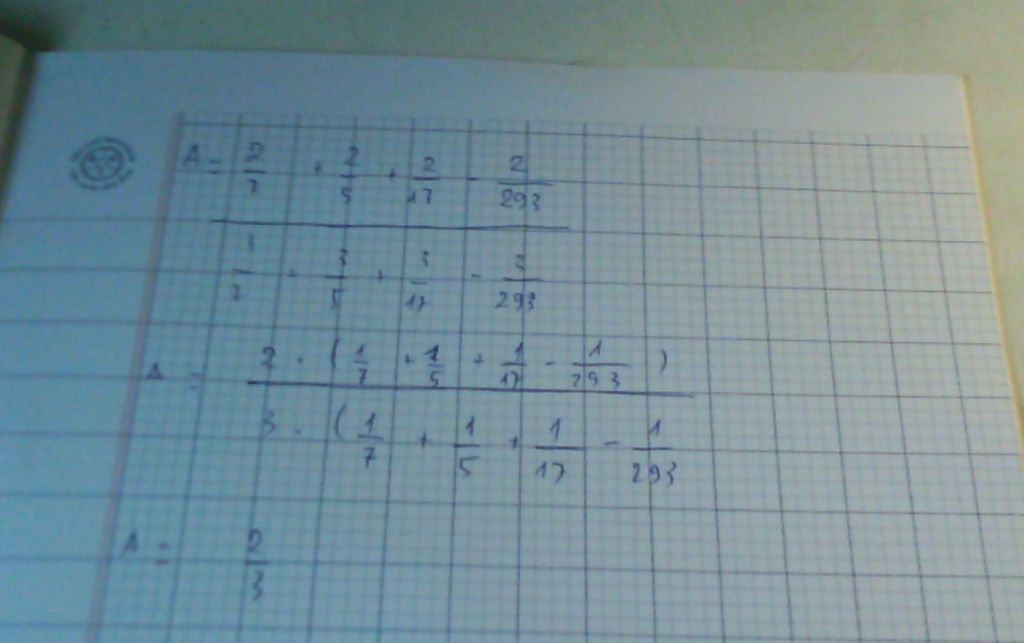 A = 2/7 + 2/5 + 2/17 - 2/293
3/7 + 3/5 + 3/17 - 3/293
A = 2 . (1/7 + 1/5 + 1/17 - 1/293)
3 . (1/7 + 1/5 + 1/17 - 1/293
A = 2/3